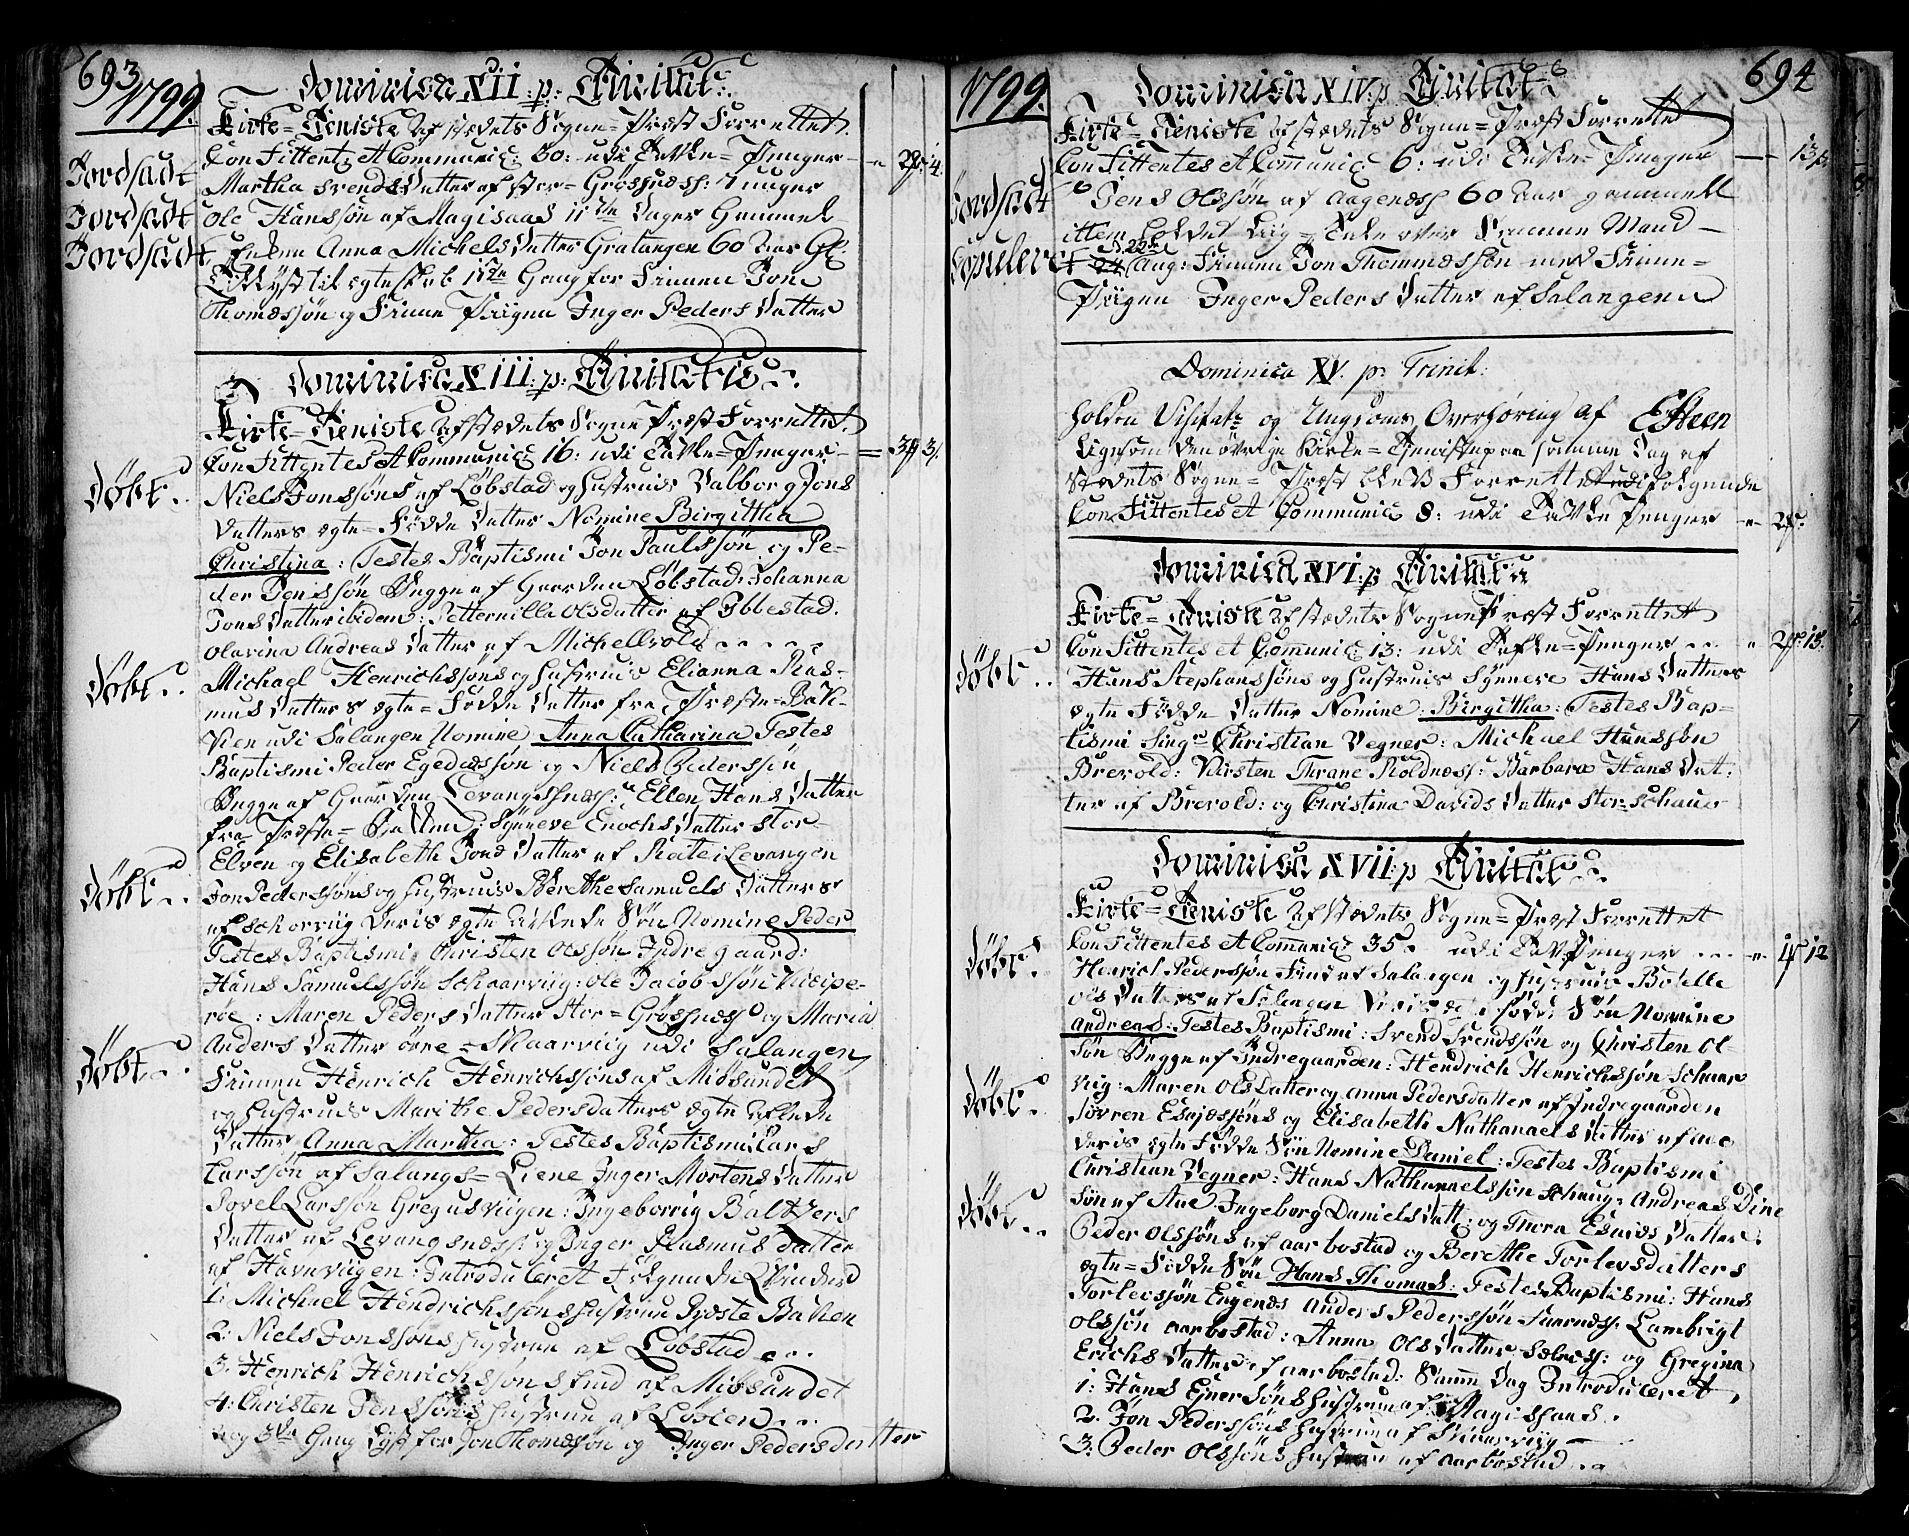 693
1799.
Dominica XII: p: Trinitat:
Kirke=Tieniste af stædets Sogne=Præst Forrettet.
Confittent: et Communic: 30: udi Tavle=Penger - " 2#. 4.
Jordsadt Martha Svends Datter af Stor=Grøssness: 7 uger
Jordsadt Ole Hanssøn af Magisaas 11 Dager Gammel
Jordsadt Enken Anna Michels Datter Gratangen 60 aar Gl:
Lyst til egteskab Gang for Finnen Jon
Thomessøn og Finne Piigen Inger Peders Datter
Dominica XIII: p: Trinitatis
Kirke=Tieniste af stædets Sogne Præst Forrettet.
Confittentes et Communic: 16: udi Tavle=Penger - = 3# 3.
Døbt. Niels Jonssøns af Løbstad og Hustrues Valborg Jons
Datters egte=Fødde Datter Nomine Birgittha
Christina: Testes Baptismi Jon Paulssøn og Pe-
der Jenssøn Begge af Gaarden Løbstad: Johanna
Jons Datter ibidem: Petternille Olsdatter af Ibbestad.
Olavina Andreas Datter af Michellvold
Døbt. Michael Henrichssøns og Hustrues Elianna Ras-
mus Datters egte=Fødde Datter fra Præste=Bak-
ken udi Salangen Nomine Anna Catharina Testes
Baptismi Peder Egedessøn og Niels Pederssøn
Begge af Gaarden Levangsness: Ellen Hans Datter
fra Præste= Synneve Enochs Datter Stor-
Elven og Elisabeth Jons Datter af Levangen
Døbt. Jon Pederssøns og Hustrues Berethe Samuels Datters
af Schorviig Deris egte Avlede Søn Nomine Peder
Testes Baptismi: Christen Olssøn Indregaard:
Hans Samuelssøn Schaarviig: Ole Jacobssøn
røe: Maren Peders Datter Stor=Grøssness og Maria
Anders Datter øvre=Skaarviig udi Salangen
Døbt. Finnen Henrich Henrichssøns af Miøsundet
og Hustrues Marithe Pedersdatters egte Avlede
Datter Anna Martha: Testes Baptismi Lars
Larssøn af Salangs=Liene Inger Mortens Datter
Povel Larssøn Gregusviigen: Ingeborrig Baltzers
Datter af Levangsness: og Inger Rasmus Datter
af Havnviigen: Introduceret Følgende Qvinder
1: Michael Hendrichssøns Hustrue Præste Bakken
2: Niels Jonssøns Hustrue af Løbstad
3. Henrich Henrichssøns Find af Miøsundet
4: Christen Jenssøns Hustrue af
og 3de Gang Lyst for Jon Thomessøn og Inger Pedersdatter
1799.
694
Dominica XIV: p Trinitat:
Kirke=Tieniste af stædets Sogne=Præst Forrettet
Confittentes et Communic: 6: udi Tavle=Penger - 13
Jordsadt Jens Olssøn af Aagenes 60 aar gammell
ittem holdet Liig=Tale over Samme Mand
Copuleret 22de Aug: Finnen Jon Thomessøn med Finne=
Piigen Inger Peders Datter af Salangen
Dominica XV. p: Trinit:
holden Visitat: og Ungdoms Overhøring af Esteen
Ligesom den øvrige Kirke=Tieniste paa samme Dag af
Stædets Sogne=Præst blev Forrettet udi følgende
Confittentes et Communic: 8: udi Tavle Penger - " 2#.
Dominica XVI: p Trinitat:
Kirke=Tieniste af stædets Sogne Præst Forrettet
Confittentes et Comunic: 13: udi Tavle=Penger " 2#. 15.
Døbt. Hans Stephanssøns og Hustrues Synneve Hans Datters
egte Fødde Datter Nomine: Birgitha: Testes Bap-
tismi Singr Christian Vegner: Michael Hanssøn
Brevold: Kirsten Thrane Roldness: Barbara Hans Dat:
ter af Brevold: og Christina Davids Datter Stor:
Dominica XVII: p Trinitat:
Kirke=Tieniste af stædets Sogne=Præst Forrettet
Confittentes et Comunic: 35. udi Tavl Penger " 1# 12
Døbt. Henrich Pederssøn Find af Salangen og Hustrue Bolette
Ols Datters af Salangen Deris egte fødde Søn Nomine
Andreas: Testes Baptismi: Svend Svendssøn og Christen Ol-
søn Begge af Indregaarden: Hendrich Henrichssøn Schaar
viig: Maren Olsdatter og Anna Pedersdatter af Indregaarden
Døbt. Søvren Esajessøns og Elisabeth Nathanaels Datter af
Deris egte Fødde Søn Nomine Daniel: Testes Baptismi
Christian Vegner: Hans Nathanaelssøn Andreas Dine
søn af Ingeborg Daniels Datt: og Thora Datter.
Døbt. Peder Olssøns af Aarbostad og Berethe Torlevsdatters
egte=Fødde Søn Hans Thomas: Testes Baptismi: Hans
Torlevssøn Engenes Anders Pederssøn Lambrigt
Olssøn Aarbostad: Anna Ols Datter og Gregina
Erichs Datter af Aarbostad: Samme Dag Introduceret,
1: Hans Ejnersøns Hustrue af Magishaas.
2. Jon Pederssøns Hustrue af
3. Peder Olssøns Hustrue af Aarbostad